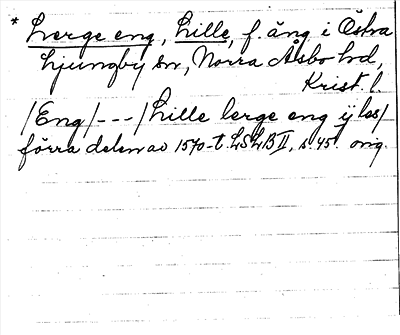 * Lerge eng, Lille, f. äng i Östra
Ljungby sn, Norra Åsbo hd,
Krist. l.
/Eng/---/Lille lerge eng ij las/
förra delen av 1570-t. LSLB II, s. 45. orig.